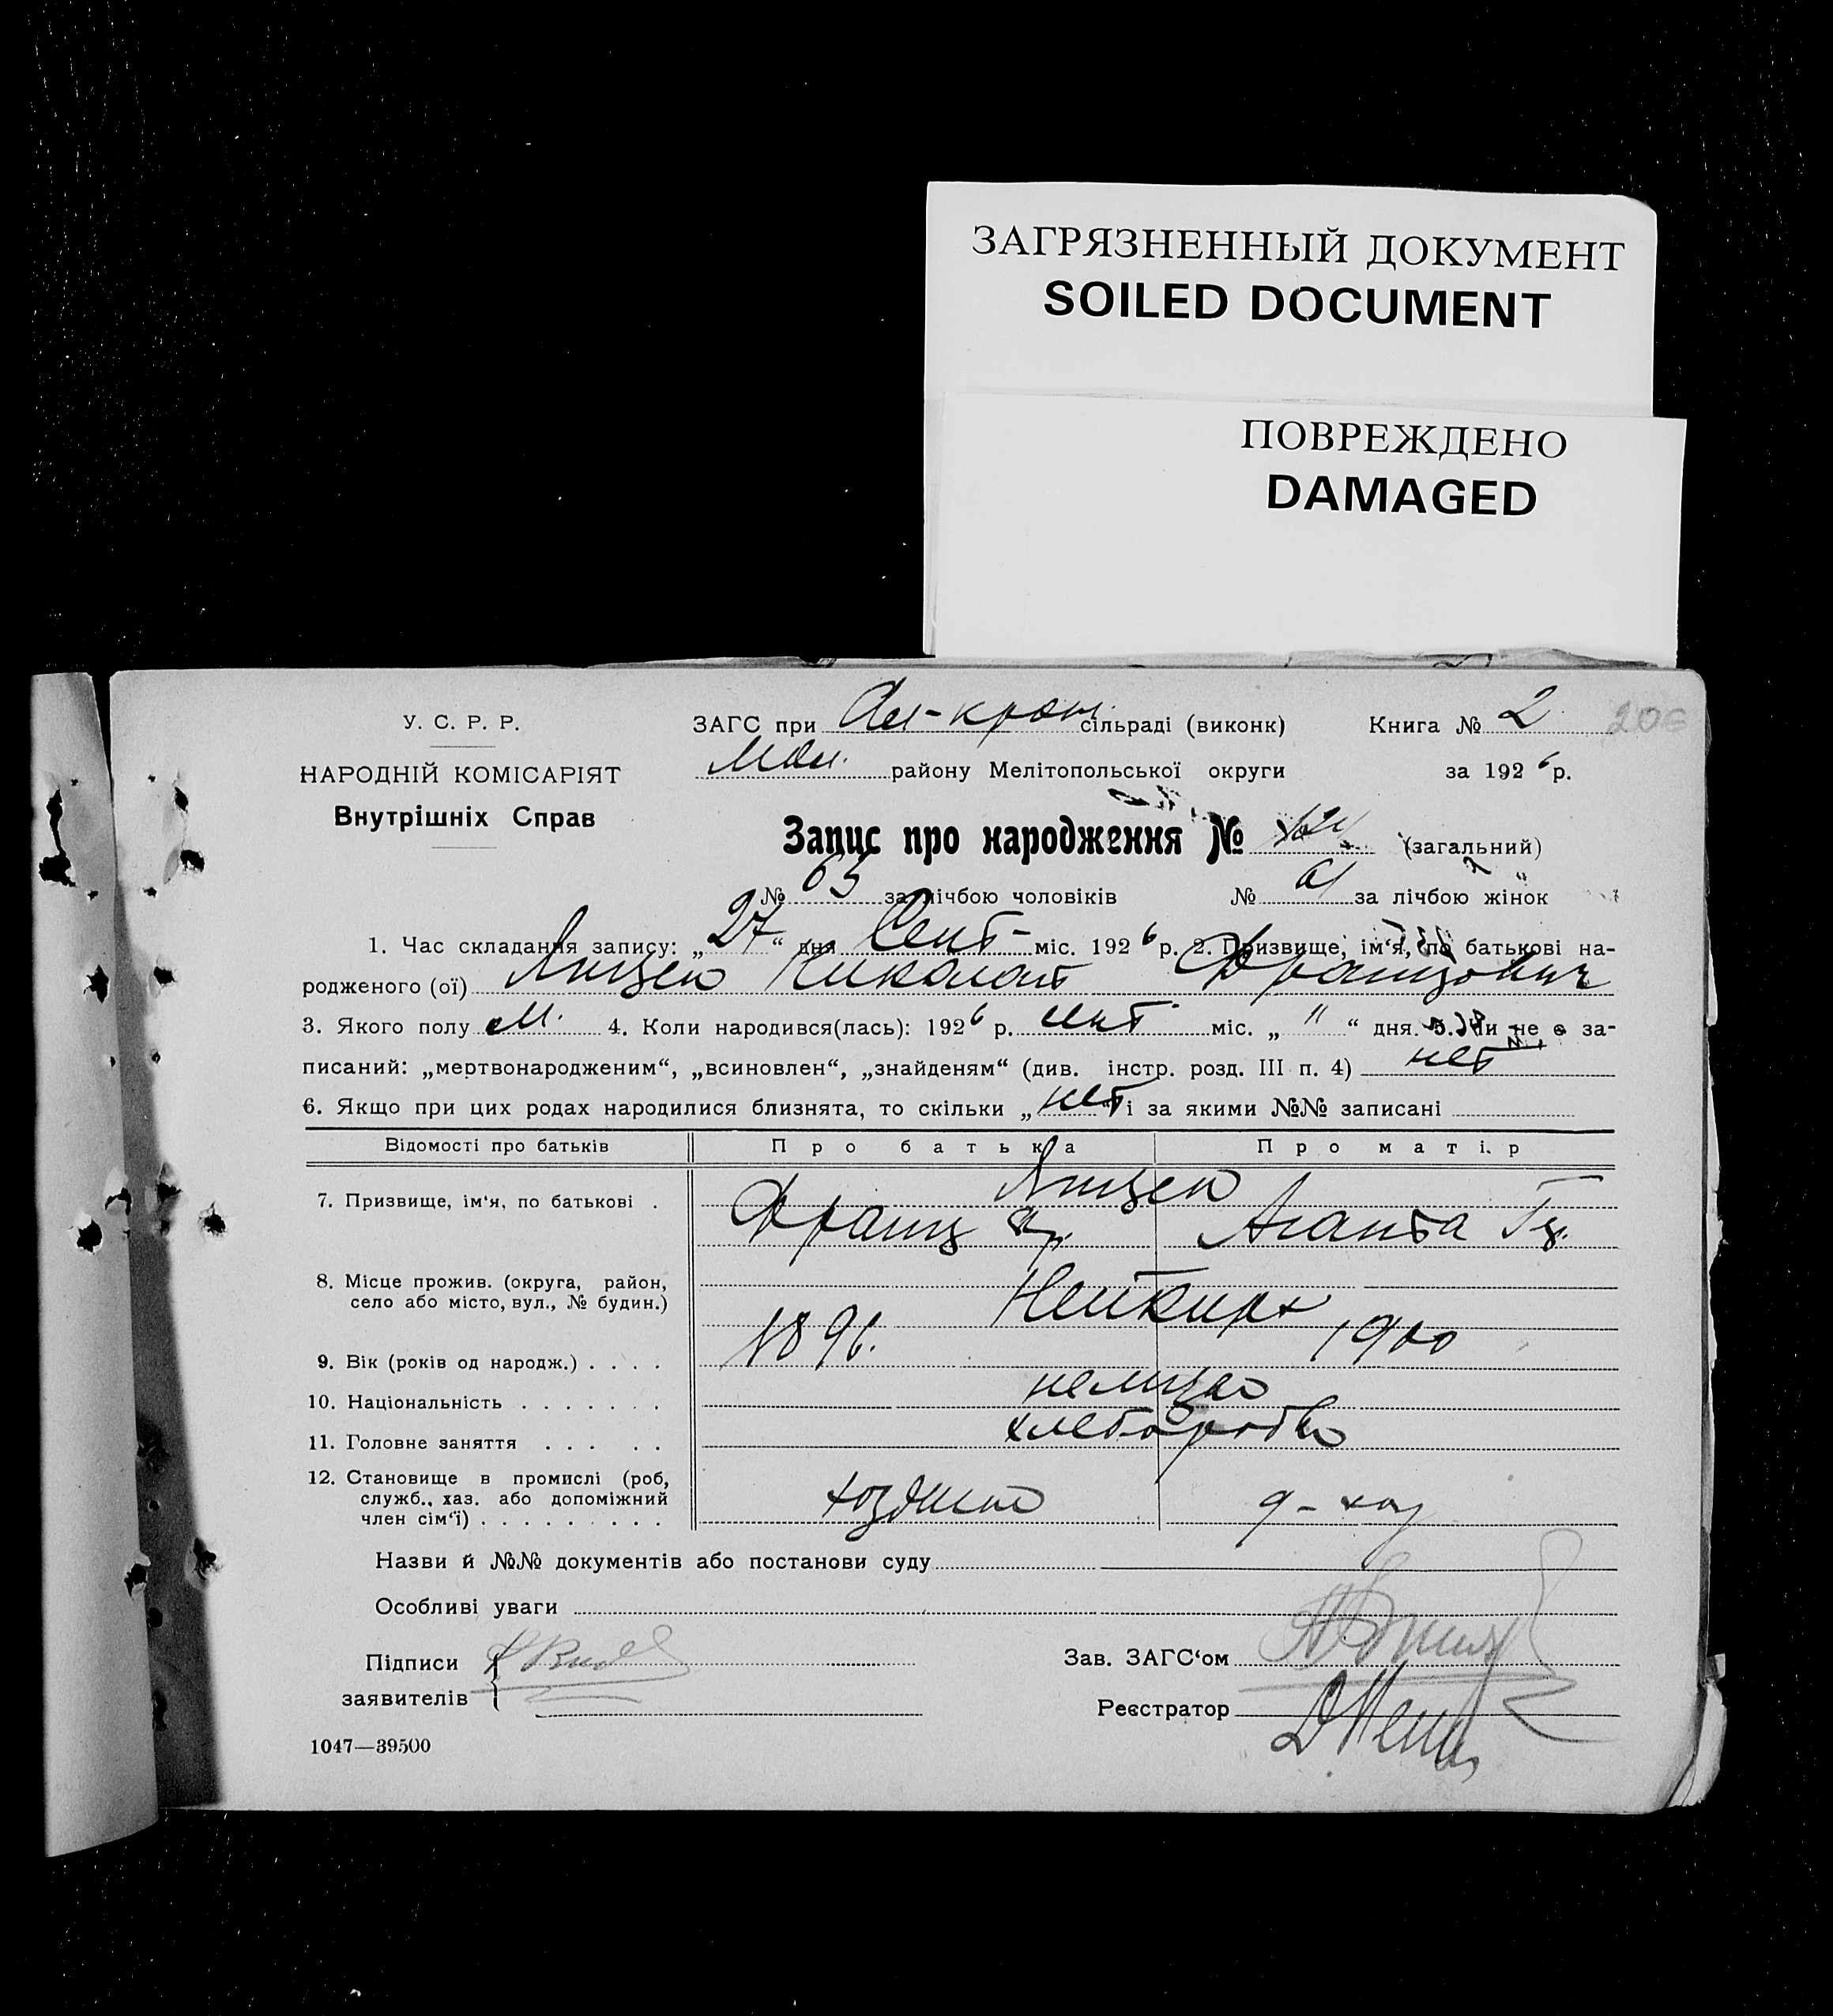 ЗАГРЯЗНЕННЫЙ ДОКУМЕНТ
SOILED DOCUMENT
ПОВРЕЖДЕНО
DAMAGED
У. С. Р. Р.
НАРОДНІЙ КОМІСАРІЯТ
Внутрішніх Справ
ЗАГС при Ал-крон. сільраді (виконк) Книга № 2 206
Мол. району Мелітопольської округи за 1926 р.
Запис про народження № 124 (загальний)
№ 63 за лічбою чоловіків № 61 за лічбою жінок
1. Час складання запису: „27“ дня Сент- міс. 1926 р. 2. Призвище, ім‘я, по батькові на-
родженого (ої) Янцен Николай Францович
3. Якого полу м. 4. Коли народився(лась): 1926 р. сент. міс. „11“ дня. 5. Чи не є за-
писаний: „мертвонародженим“, „всиновлен“, „знайденям“ (див. інстр. розд. III п. 4) нет
6. Якщо при цих родах народилися близнята, то скільки „нет“ і за якими №№ записані
Відомості про батьків Про батька Про матір
7. Призвище, ім‘я, по батькові . Янцен
Франц Агата
8. Місце прожив. (округа, район,
село або місто, вул., № будин.) Нейкирх
9. Вік (років од народж.) . . . . 1896. 1900
10. Національність . . . . . . . немцы
11. Головне заняття . . . . . хлебороб
12. Становище в промислі (роб,
служб., хаз. або допоміжний
член сім‘ї) . . . . . . . . . д-хоз
Назви й №№ документів або постанови суду
Особливі уваги
Підписи
заявителів
Зав. ЗАГС‘ом
Реєстратор
1047—39500